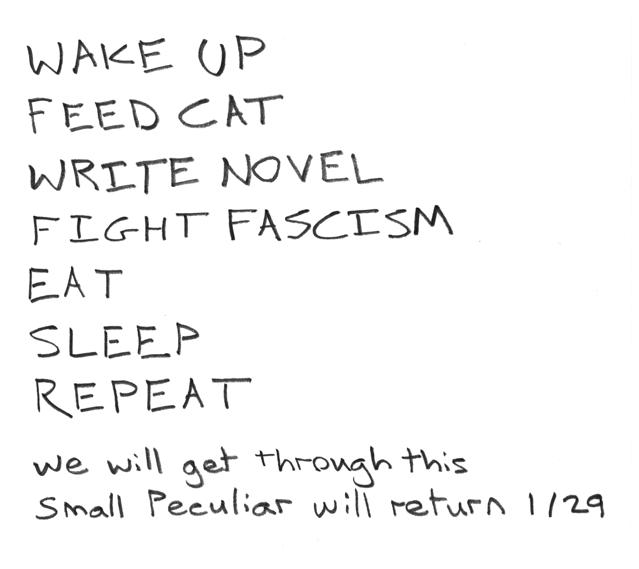 WAKE UP
FEED CAT
WRITE NOVEL
FIGHT FASCISM
EAT
SLEEP
REPEAT
we will get through this
Small Peculiar will return 1/29